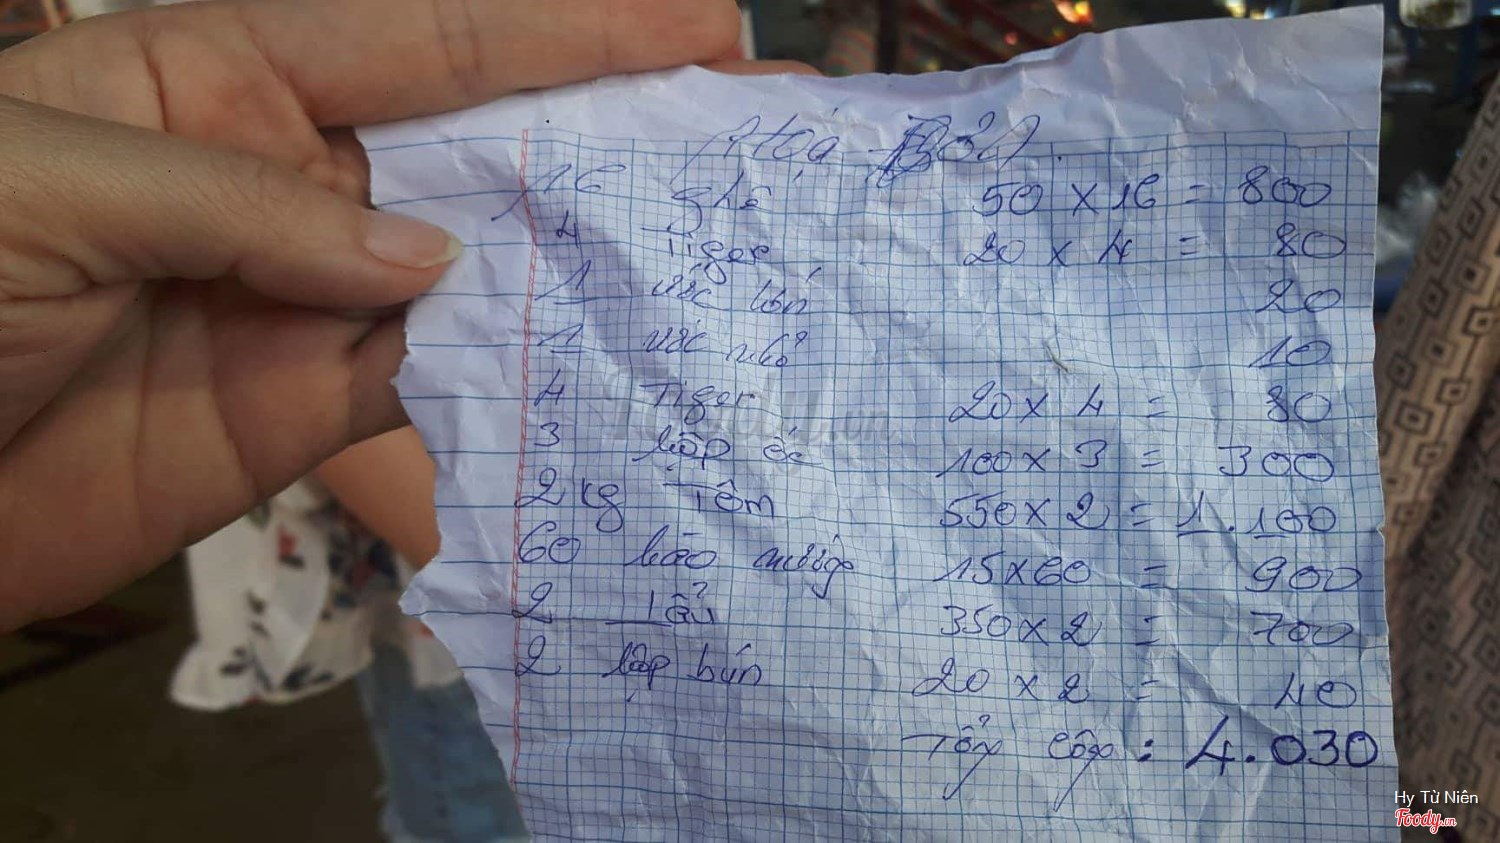 Hoá Đơn
16 ghế 50 x 16 = 800
4 Tiger 20 x 4 = 80
1 ước lớn 20
1 ước nhỏ 10
4 Tiger 20 x 4 = 80
3 hộp ốc 100 x 3 = 300
2 kg Tôm 550 x 2 = 1.100
60 hào nướng 15 x 60 = 900
2 Lẩu 350 x 2 = 700
2 hộp bún 20 x 2 = 40
Tổng cộng : 4.030
Hy Từ Niên
Foody.vn